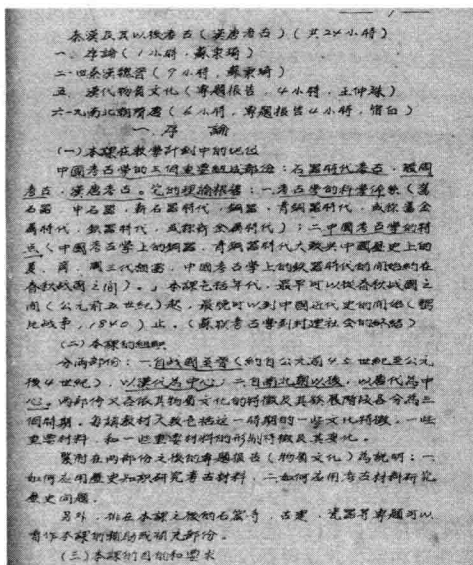 秦漢及其以後考古(漢唐考古)(共24小時)
一、序論(1小時,蘇秉琦)
二—四秦漢魏晉(9小時,蘇秉琦)
五、漢代物質文化(專題報告,4小時,王仲殊)
六—九南北朝隋唐(6小時,專題報告4小時,宿白)
一、序論
(一)本課在教學計劃中的地位
中國考古學的三個重要組成部份:石器時代考古,殷周
考古,漢唐考古。它的理論根據:一考古學的科學體系(舊
石器、中石器、新石器時代,銅器、青銅器時代,或綜稱金
屬時代,鐵器時代,或綜稱金屬時代);二中國考古學的特
點(中國考古學上的銅器、青銅器時代大致與中國歷史上的
夏、商、周三代相當,中國考古學上的鐵器時代的開始約在
春秋戰國之間)。本課包括年代,最早可以從春秋戰國之
間(公元前五世紀)起,最晚可以到中國近代史的開始(鴉
片戰爭,1840)止。(蘇聯考古學到封建社會的終結)
(二)本課的組織
分兩部份:一自戰國至晉(約自公元前4、5世紀至公元
後4世紀),以漢代為中心;二自南北朝以後,以唐代為中
心。兩部份又各依其物質文化的特徵及其發展階段各分為三
個時期。每講教材大致包括這一時期的一些文化特徵,一些
重要材料,和一些重要材料的形制特徵及其變化。
緊附在兩部份之後的專題報告(物質文化)為說明:一
如何應用歷史知識研究考古材料,二如何應用考古材料研究
歷史問題。
另外,排在本課之後的石窟寺、古建、瓷器等專題可以
看作本課的輔助或補充部份。
(三)本課的目的和要求